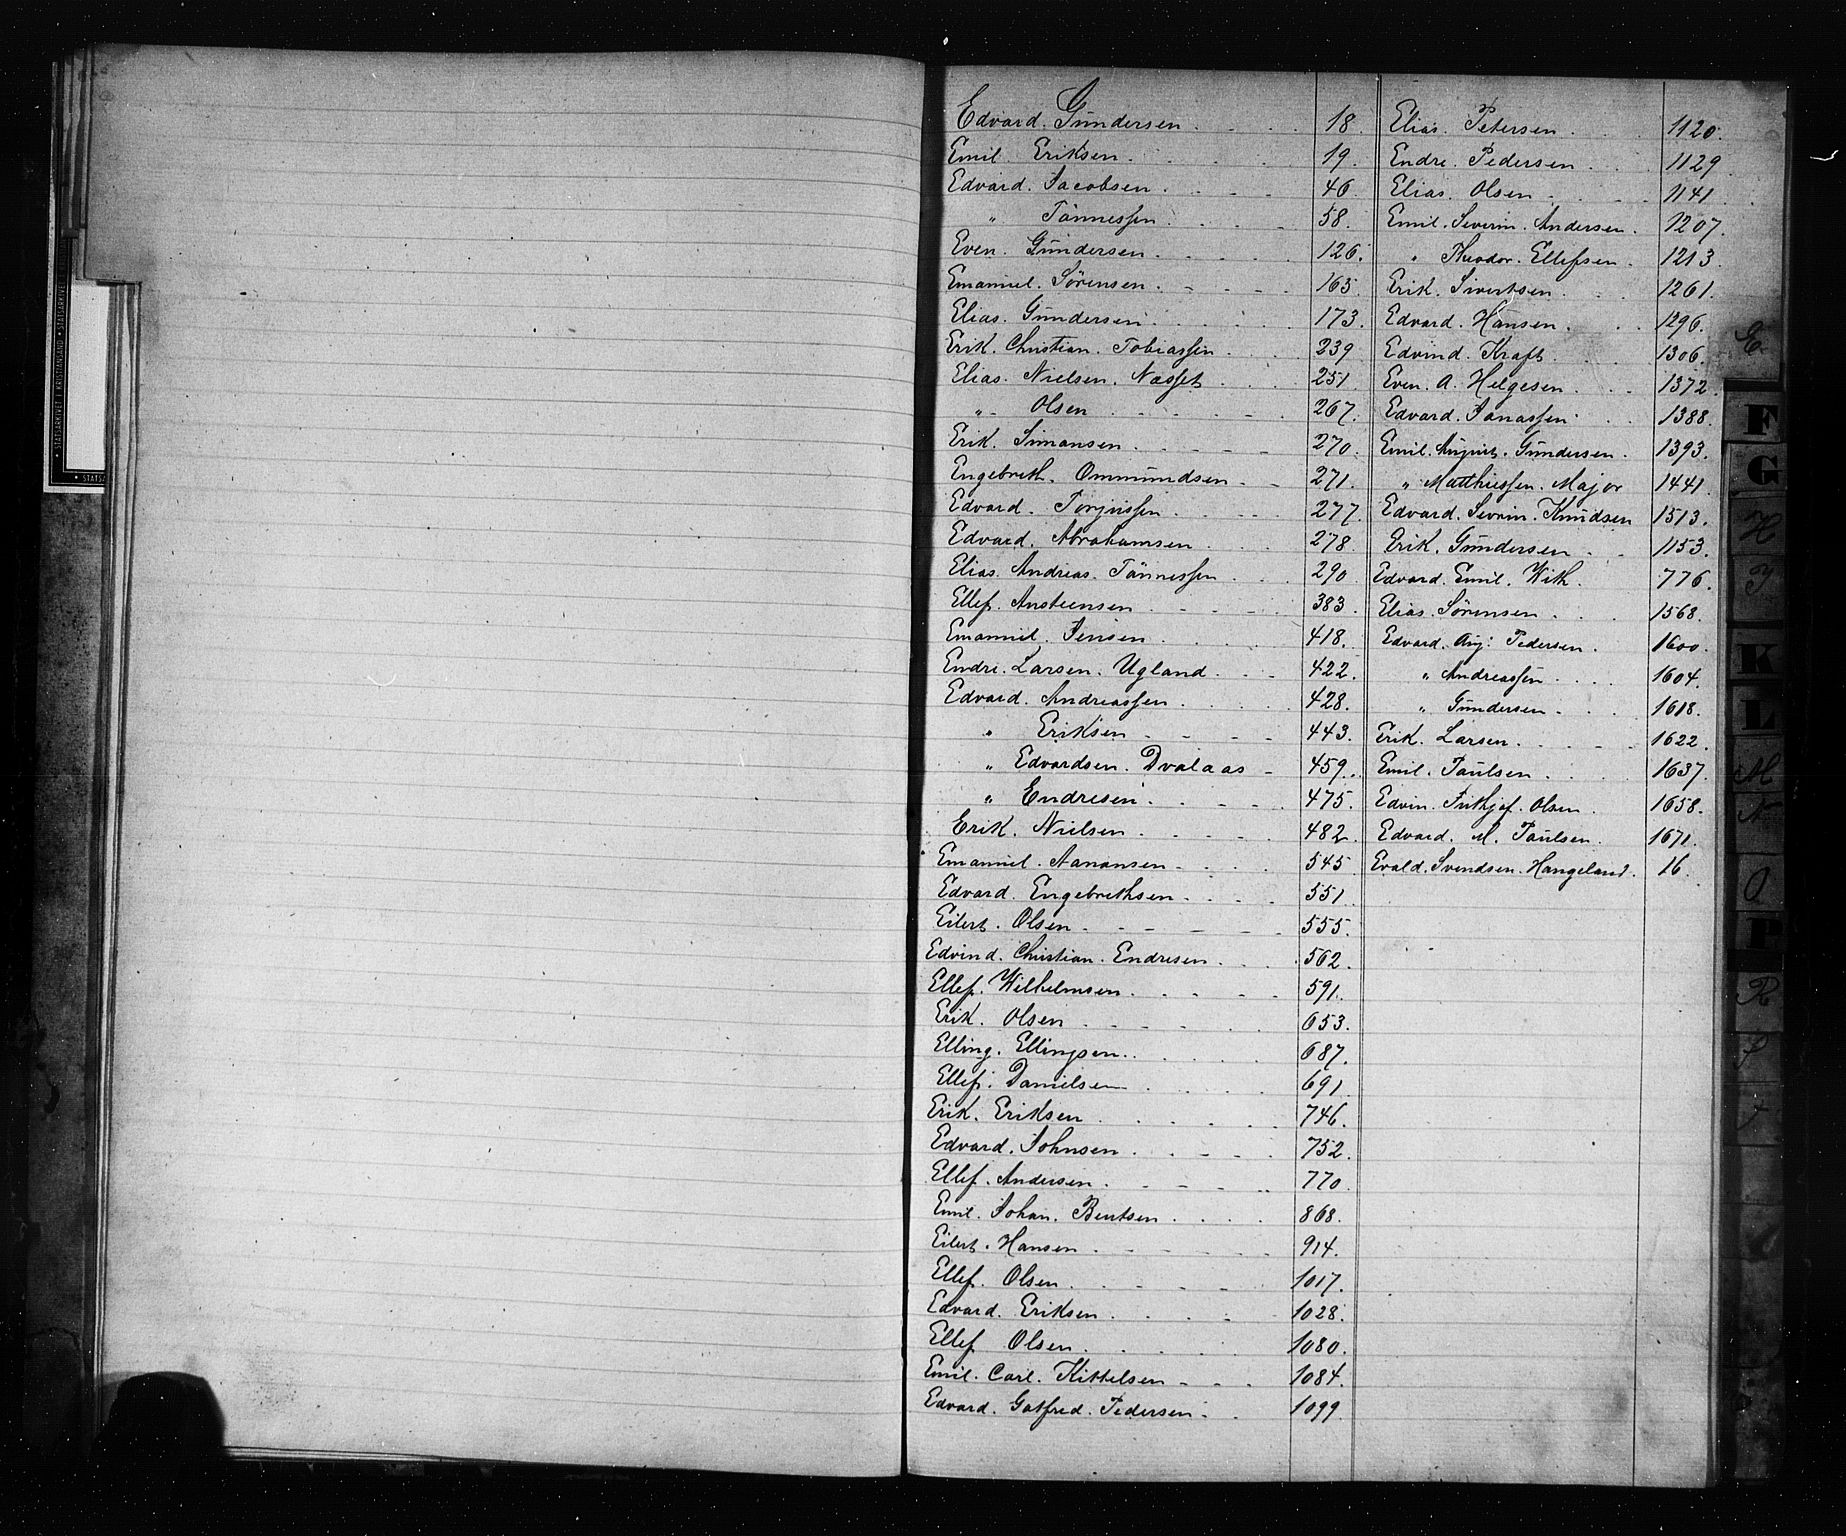 Edvard. Gundersen. 18.
Emil. Eriksen. 19.
Edvard. Jacobsen. 46
" Tönnessen 58.
Even. Gundersen. 126.
Emanuel. Sörensen. 165.
Elias. Gundersen. 173.
Erik. Christian. Tobiassen. 239
Elias. Nielsen. Næsset. 251
" Olsen 267.
Erik. Simonsen. 270.
Engebreth. Ommundsen. 271.
Edvard. Torjussen. 277.
Edvard. Abrahamsen. 278.
Elias. Andreas. Tönnessen. 290.
Ellef. Ansteensen. 383.
Emanuel. Jensen. 418.
Endre. Larsen. Ugland. 422.
Edvard. Andreassen. 428.
" Eriksen. 443.
" Edvardsen. Dvalaas 459.
" Endresen. 475.
Erik. Nielsen. 482.
Emanuel. Aanonsen. 545
Edvard. Engebrethsen. 551.
Eilert. Olsen. 555.
Edvind. Christian. Endresen. 562.
Ellef. Wilhelmsen. 591.
Erik. Olsen. 653.
Elling. Ellingsen. 687.
Ellef. Danielsen 691
Erik. Eriksen 746.
Edvard. Johnsen. 752.
Ellef. Andersen. 770.
Emil. Johan. Bentsen. 868.
Eilert. Hansen. 914.
Ellef. Olsen. 1017.
Edvard. Eriksen. 1028.
Ellef. Olsen. 1080.
Emil. Carl. Kittelsen. 1084.
Edvard. Gotfred. Pedersen. 1099
Elias. Petersen. 1120.
Endre. Pedersen. 1129
Elias. Olsen. 1141.
Emil. Severin. Andersen. 1207.
" Theodor. Ellefsen. 1213.
Erik. Sivertsen. 1261.
Edvard. Hansen. 1296.
Edvind. Kraft. 1306.
Even. A. Helgesen. 1372.
Edvard. Jonassen. 1388.
Emil. August. Gundersen. 1393.
" Matthiessen. Major 1441.
Edvard. Sevrin. Knudsen 1513.
Erik. Gundersen. 1153.
Edvard. Emil. With. 776.
Elias. Sörensen. 1568.
Edvard. Aug: Pedersen. 1600.
" Andreassen. 1604.
" Gundersen. 1618.
Erik. Larsen. 1622.
Emil. Paulsen. 1637.
Edvin. Frithjof. Olsen. 1658.
Edvard. M. Paulsen. 1671.
Evald. Svendsen. Hangeland. 16.
E
F
G
H
I
K
L
M
N
O
P
R
S
T
STATSARKIVET I KRISTIANSAND • STATSARKIVET